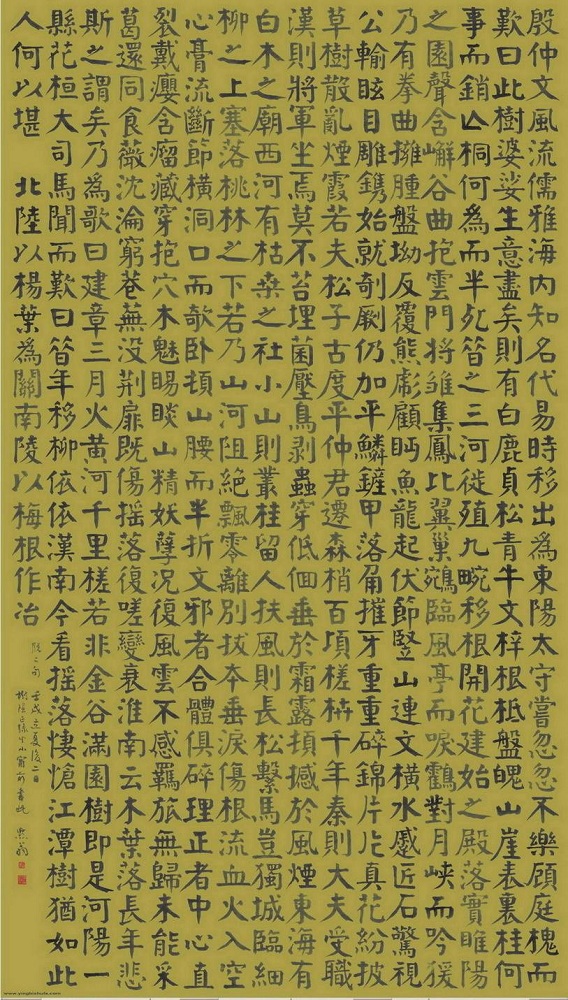 殷仲文風流儒雅海內知名代易時移出為東陽太守嘗忽忽不樂顧庭槐而
歎曰此樹婆娑生意盡矣則有白鹿貞松青牛文梓根柢盤魄山崖表裏桂何
事而銷亾桐何為而半死昔之三河徙殖九畹移根開花建始之殿落實睢陽
之園聲含嶰谷曲抱雲門將雛集鳳比翼巢鵷臨風亭而唳鶴對月峽而吟猨
乃有拳曲擁腫盤坳反覆熊彪顧眄魚龍起伏節豎山連文橫水感匠石驚視
公輸眩目雕鎸始就剞劂仍加平鱗鏟甲落角摧牙重重碎錦片片真花紛披
草樹散亂煙霞若夫松子古度平仲君遷森梢百頃槎枿千年秦則大夫受職
漢則將軍坐焉莫不苔埋菌壓鳥剥蟲穿低佪垂於霜露頓撼於風煙東海有
白木之廟西河有枯桒之社小山則叢桂留人扶風則長松繫馬豈獨城臨細
柳之上塞落桃林之下若乃山河阻絕飄零離別拔本垂淚傷根流血火入空
心膏流斷節橫洞口而欹臥頓山腰而半折文邪者合體俱碎理正者中心直
裂戴癭含瘤藏穿抱穴木魅睗睒山精妖孽況復風雲不感羈旅無歸未能采
葛還同食薇沈淪窮巷蕪没荊扉既傷搖落復嗟變衰淮南云木葉落長年悲
斯之謂矣乃為歌曰建章三月火黃河千里槎若非金谷滿園樹即是河陽一
縣花桓大司馬聞而歎曰昔年移柳依依漢南今看搖落悽愴江潭樹猶如此
人何以堪 北陸以楊葉為關南陵以梅根作冶
脫二句 壬戌立夏後二日
www.yingbishufa.com